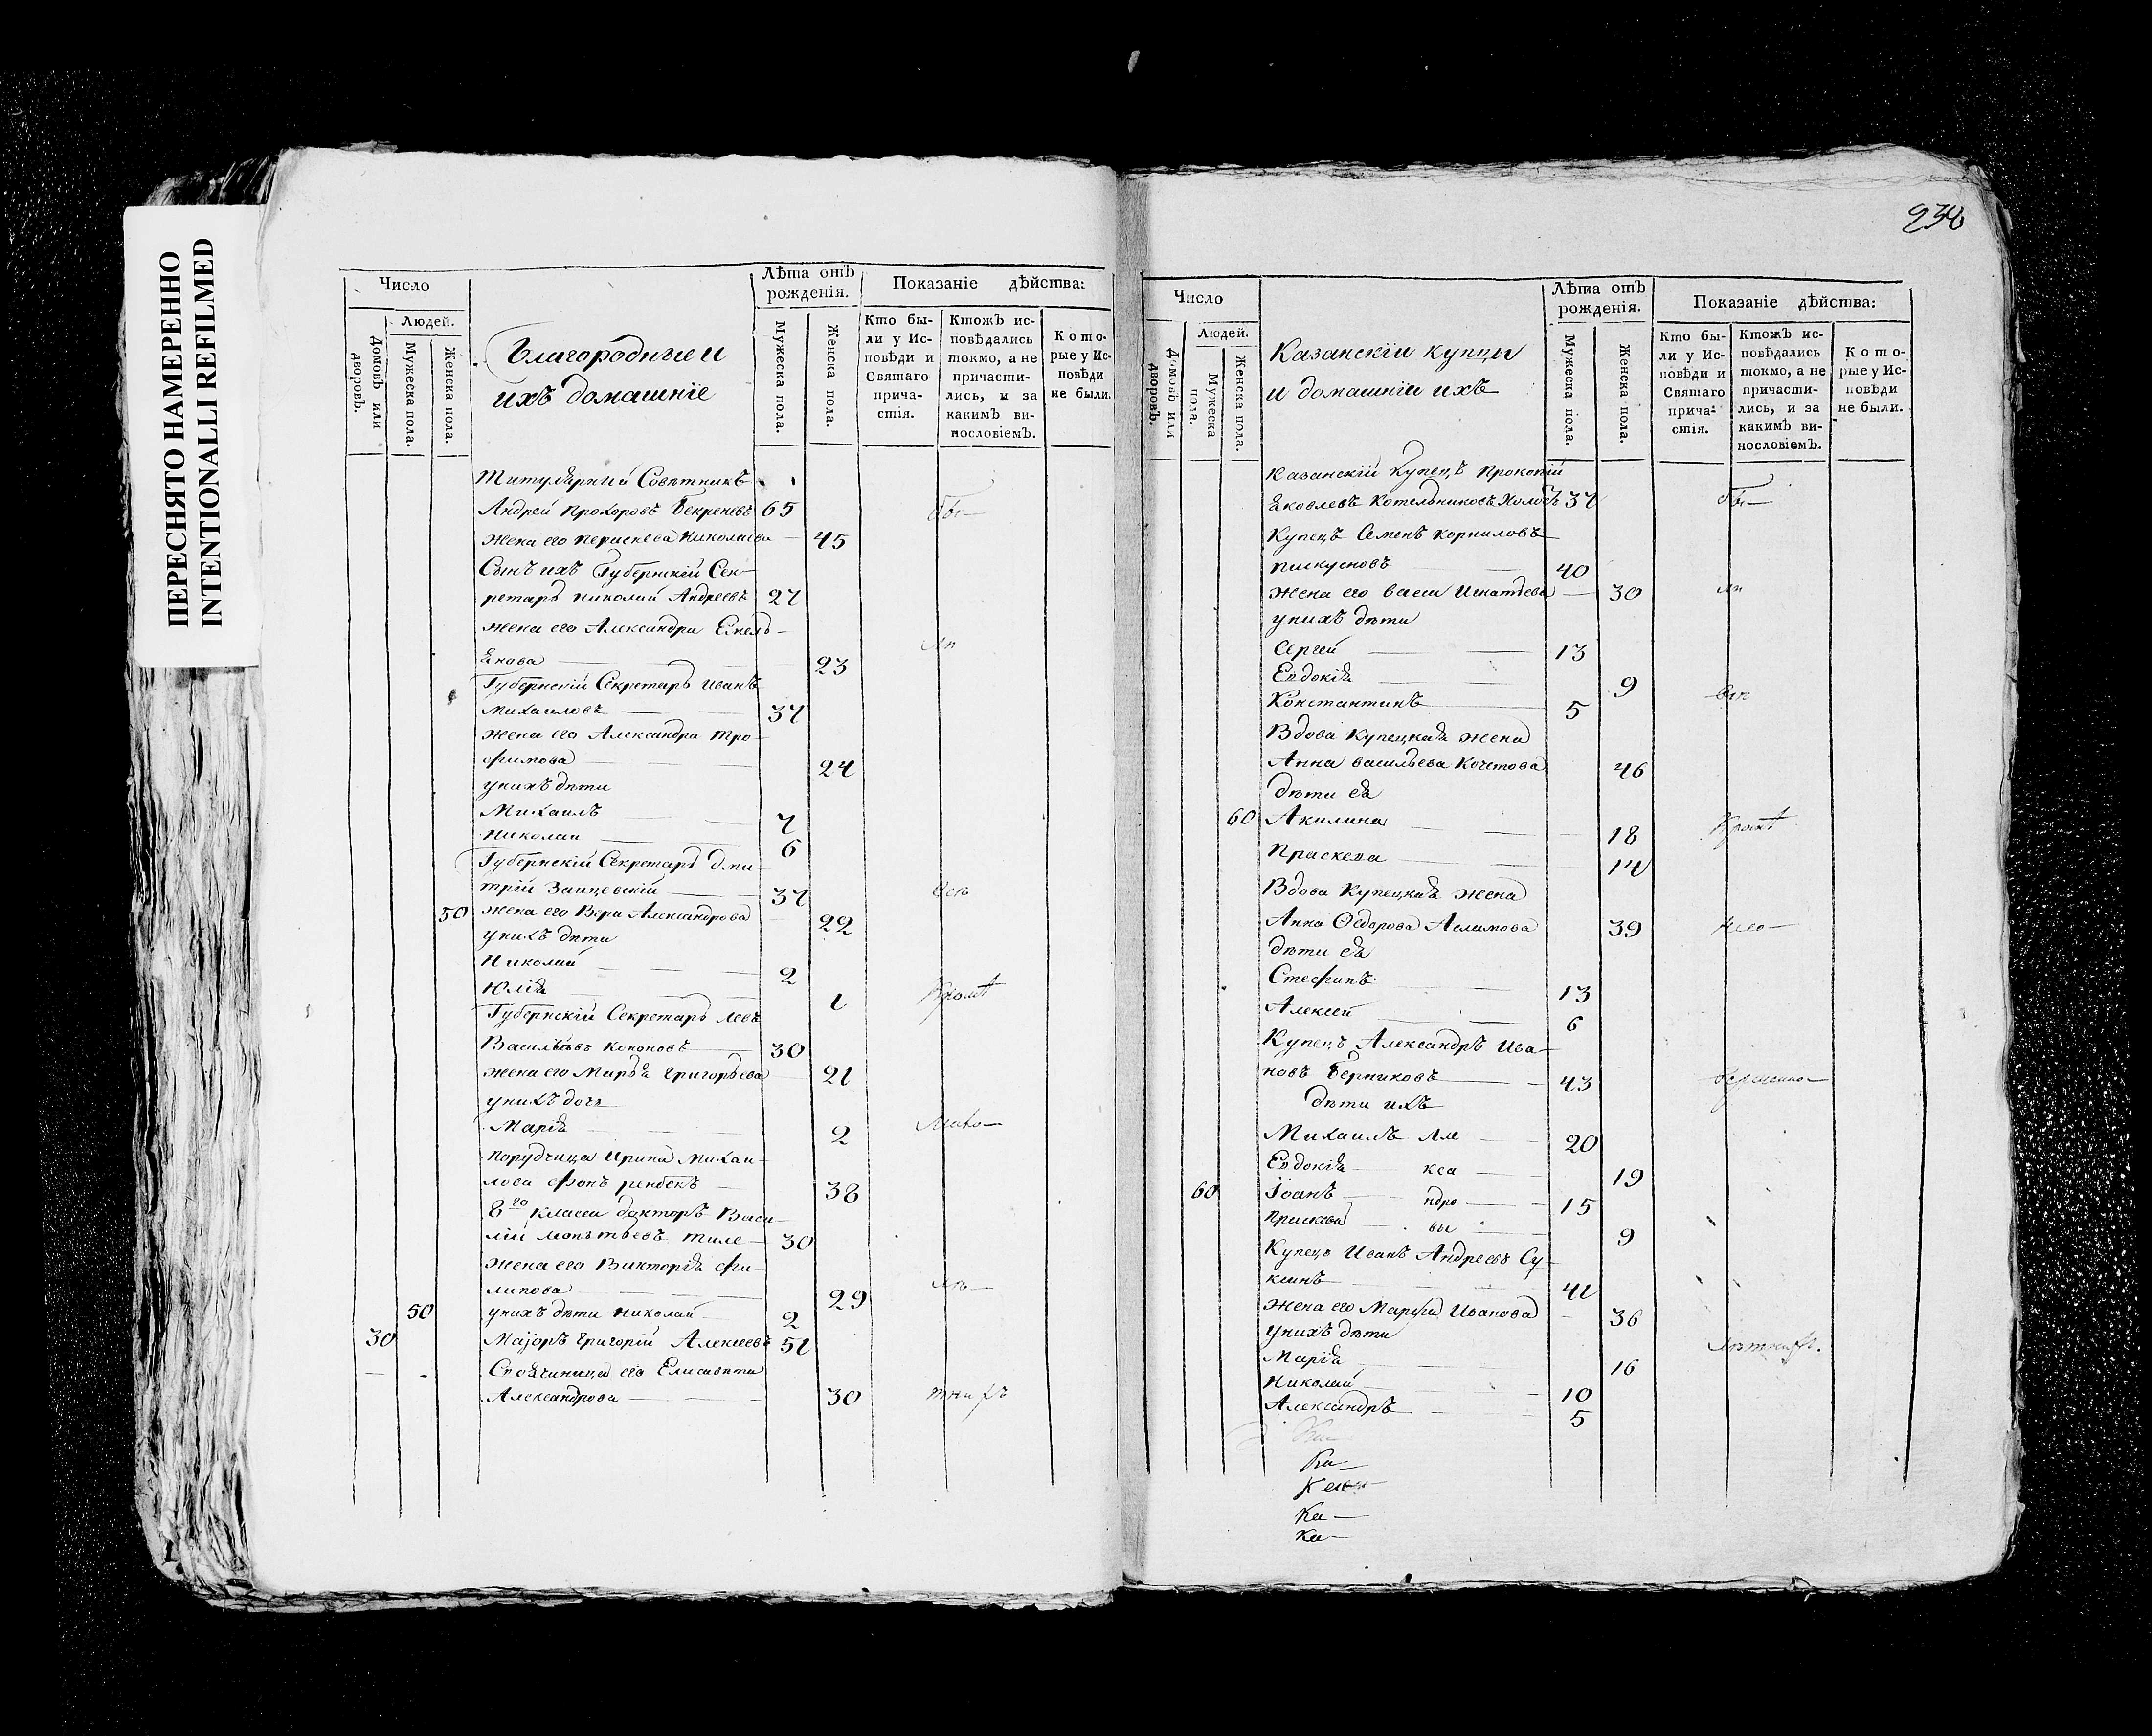 ПЕРЕСНЯТО НАМЕРЕННО
INTENTIONALLI REFILMED
Число
Людей.
Домовъ или дворовъ.
Мужеска пола.
Женска пола.
Благородные и
ихъ домашніе
Лѣта отъ
рожденія.
Мужеска пола.
Женска пола.
Показаніе дѣйства:
Кто бы-
ли у Ис-
повѣди и
Святаго
прича-
стія.
Ктожъ ис-
повѣдались
токмо, а не
причасти-
лись, и за
какимъ ви-
нословіемъ.
Кото-
рые у Ис-
повѣди
не были.
Титулярній Совѣтникъ
Андрей Прохоровъ Бекреневъ 65
жена его Николаева 45
Сынъ ихъ Губернскій Сек-
ретарь Николай Андреевъ 27
жена его Александра Емель-
янова 23
Губернскій Секретарь Иванъ
Михаиловъ 37
жена его Александра Тро-
фимова 24
унихъ дѣти
Михаилъ 7
Николаи 6
Губернскій Секретарь Дми
трій Заицевскій 37
50 жена его Вера Александрова 22
унихъ дѣти
Николай 2
Юлія 1
Губернскій Секретарь Левъ
Васильевъ Кононовъ 30
жена его Марья Григорьева 21
унихъ дочь
Марія 2
порудчица Ирина Михаи-
лова фонъ 38
8го класса докторъ Васи-
лій 30
жена его Викторія Фи-
липова 29
50 унихъ дѣти Николай 2
30 Маіоръ Григорій Алексеевъ 51
Своячиница его Елисавѣта
Александрова 30
234
Число
Людей.
Домовъ или дворовъ.
Мужеска пола.
Женска пола.
Казанскіи купцы
и домашніи ихъ
Лѣта отъ
рожденія.
Мужеска пола.
Женска пола.
Показаніе дѣйства:
Кто бы-
ли у Ис-
повѣди и
Святаго
прича-
стія.
Ктожъ ис-
повѣдались
токмо, а не
причасти-
лись, и за
какимъ ви-
нословіемъ.
Кото-
рые у Ис-
повѣди
не были.
Казанскій Купецъ Прокопій
Яковлевъ Котельниковъ Холостъ 37
Купецъ Семенъ Корниловъ
Пискуновъ 40
жена его Васса Игнатьева 30
унихъ дѣти
Сергей 13
Евдокія 9
Константинъ 5
Вдова Купецкая жена
Анна Васильева Кочетова 46
дѣти ея
60 Акилина 18
Праскева 14
Вдова Купецкая жена
Анна Ѳедорова Аслямова 39
дѣти ея
Стефанъ 13
Алексей 6
Купецъ Александръ Ива
новъ Берниковъ 43
дѣти ихъ
Михаилъ Але 20
Евдокія кса 19
60 Іоанъ ндро 15
Праскева вы 9
Купецъ Иванъ Андреевъ Су-
кинъ 41
жена его Марфа Иванова 36
унихъ дѣти
Марія 16
Николай 10
Александръ 5
Ка
Ка